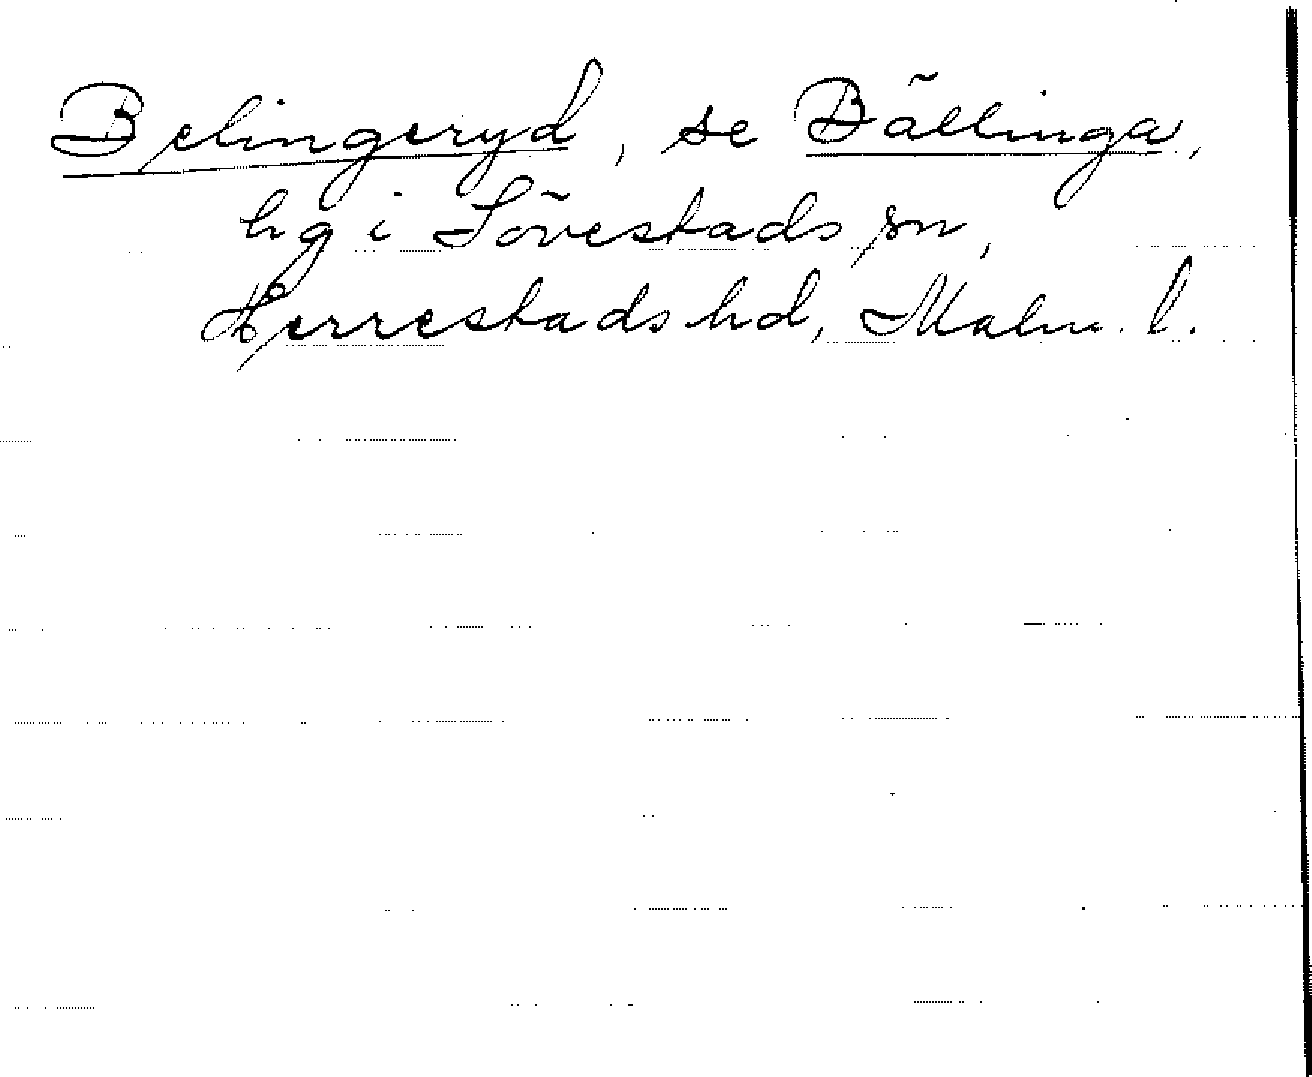 Belingeryd, se Bällinga,
hg i Sövestads sn,
Herrestads hd, Malm. l.